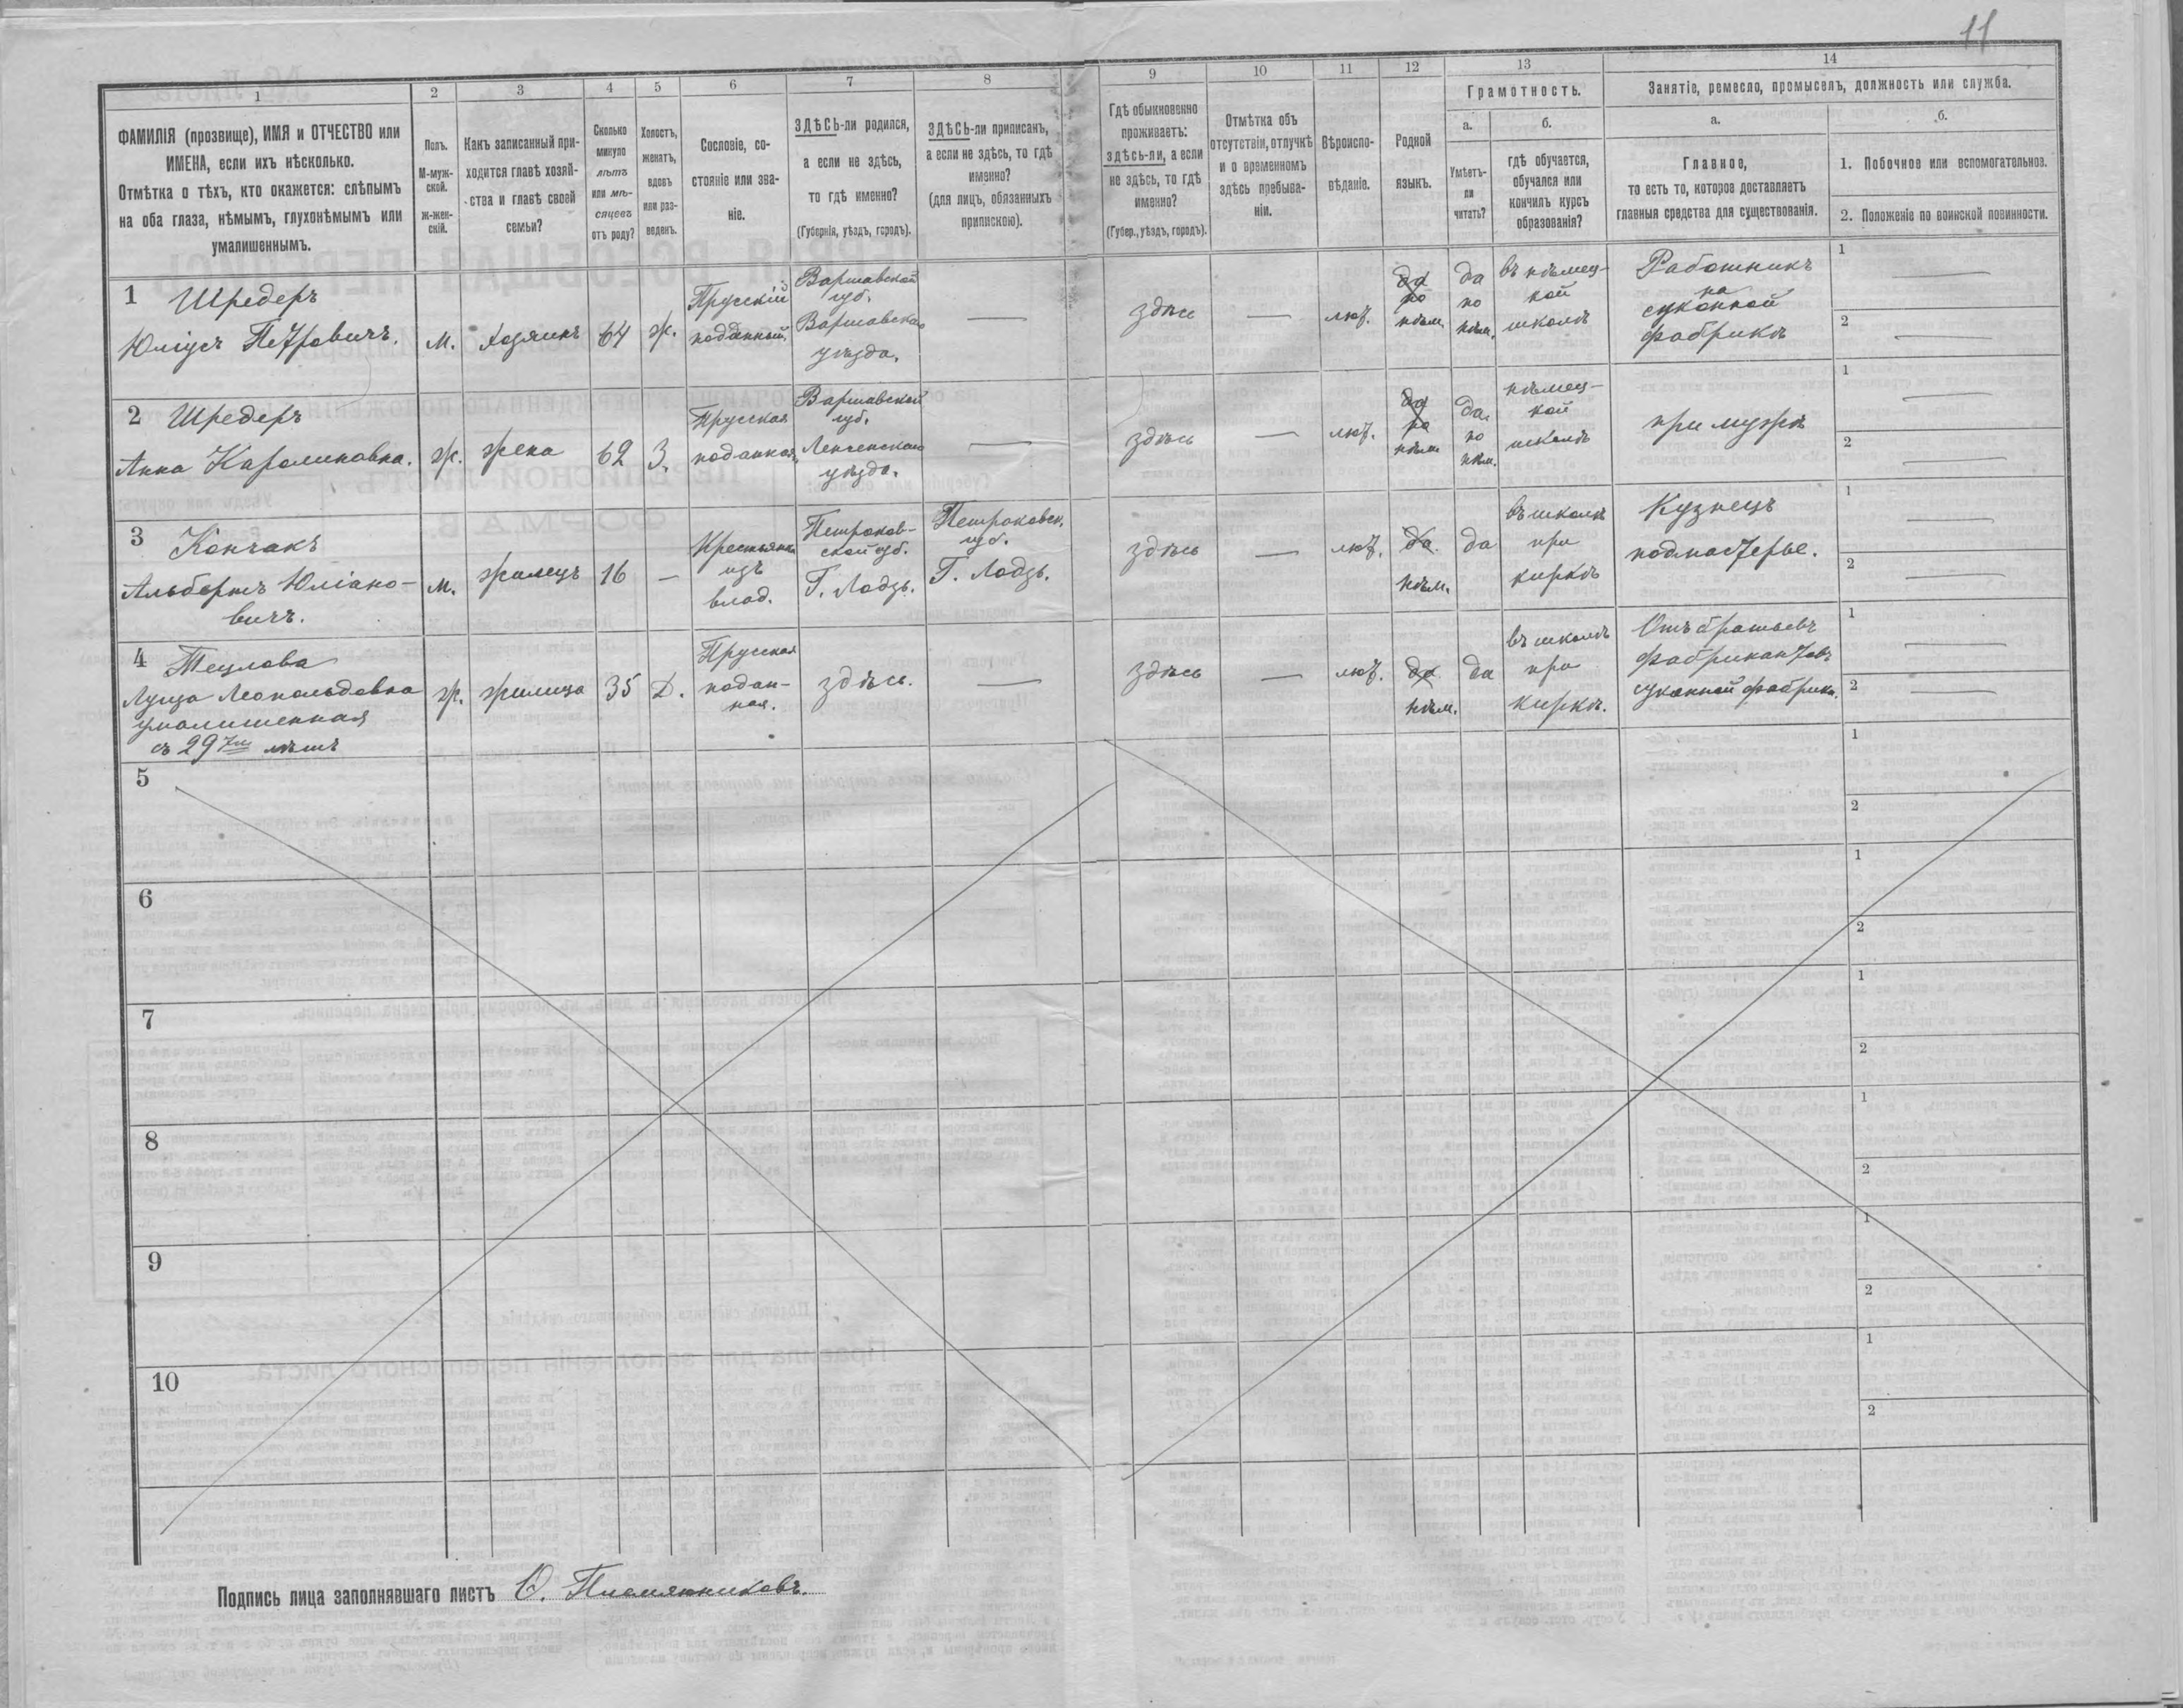 11
1
2
3
4
5
6
7
8
9
10
11
12
13
14
ФАМИЛІЯ (прозвище), ИМЯ и ОТЧЕСТВО или
ИМЕНА, если ихъ нѣсколько.
Отмѣтка о тѣхъ, кто окажется: слѣпымъ
на оба глаза, нѣмымъ, глухонѣмымъ или
умалишеннымъ.
Полъ.
М-муж-
ской.
ж-жен-
скій.
Какъ записанный при-
ходится главѣ хозяй-
ства и главѣ своей
семьи?
Сколько
минуло
лѣтъ
или мѣ-
сяцевъ
отъ роду?
Холостъ,
женатъ,
вдовъ
или раз-
веденъ.
Сословіе, со-
стояніе или зва-
ніе.
ЗДѢСЬ-ли родился,
а если не здѣсь,
то гдѣ именно?
(Губернія, уѣздъ, городъ).
ЗДѢСЬ-ли приписанъ,
а если не здѣсь, то гдѣ
именно?
(для лицъ, обязанныхъ
припискою).
Гдѣ обыкновенно
проживаетъ:
здѣсь-ли, а если
не здѣсь, то гдѣ
именно?
(Губер., уѣздъ, городъ).
Отмѣтка объ
отсутствіи, отлучкѣ
и о временномъ
здѣсь пребыва-
ніи.
Вѣроиспо-
вѣданіе.
Родной
языкъ.
Грамотность.
а.
Умѣетъ-
ли
читать?
б.
гдѣ обучается,
обучался или
кончилъ курсъ
образованія?
Занятіе, ремесло, промыселъ, должность или служба.
а.
Главное,
то есть то, которое доставляетъ
главныя средства для существованія.
б.
1. Побочное или вспомогательное.
2. Положеніе по воинской повинности.
1 Шредеръ
Юліусъ Петровичъ.
м.
хозяинъ
64
ж.
Прусскій
подданный.
Варшавской
губ.
Варшавскаго
уѣзда.
—
здѣсь
—
лют.
да
по
нѣм.
да
по
нѣм.
въ нѣмец-
кой
школѣ
Работникъ
на
суконной
фабрикѣ
1 —
2 —
2 Шредеръ
Анна Каролиновна.
ж.
жена
62
З.
Прусская
поданная,
Варшавской
губ.
Ленченскаго
уѣзда.
—
здѣсь
—
лют.
да
по
нѣм.
да
по
нѣм.
нѣмец-
кой
школѣ
при мужѣ
1 —
2 —
3 Кончакъ
Альбертъ Юліано-
вичъ.
м.
жилецъ
16
—
изъ
влад.
Петроков-
ской губ.
Г. Лодзь.
Петроковск.
губ.
Г. Лодзь.
здѣсь
—
лют.
да
нѣм.
да
въ школѣ
при
киркѣ
Кузнецъ
подмастерье.
1 —
2 —
4 Тецлова
Луиза Леопольдовна
умалишенная
съ 29ти лѣтъ
ж.
жилица
35
Д.
Прусская
подан-
ная.
здѣсь.
—
здѣсь
—
лют.
да
нѣм.
да
въ школѣ
при
киркѣ.
Отъ братьевъ
фабрикантовъ
суконной фабрики.
1 —
2 —
5
1
2
6
1
2
7
1
2
8
1
2
9
1
2
10
1
2
Подпись лица заполнявшаго листъ О. Племянниковъ.